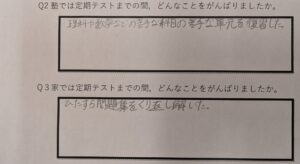 Q2 塾では定期テストまでの間、どんなことをがんばりましたか。
理科や数学などの苦手な科目の苦手な単元を復習した。
Q3 家では定期テストまでの間、どんなことをがんばりましたか。
ひたすら問題集をくり返し解した。